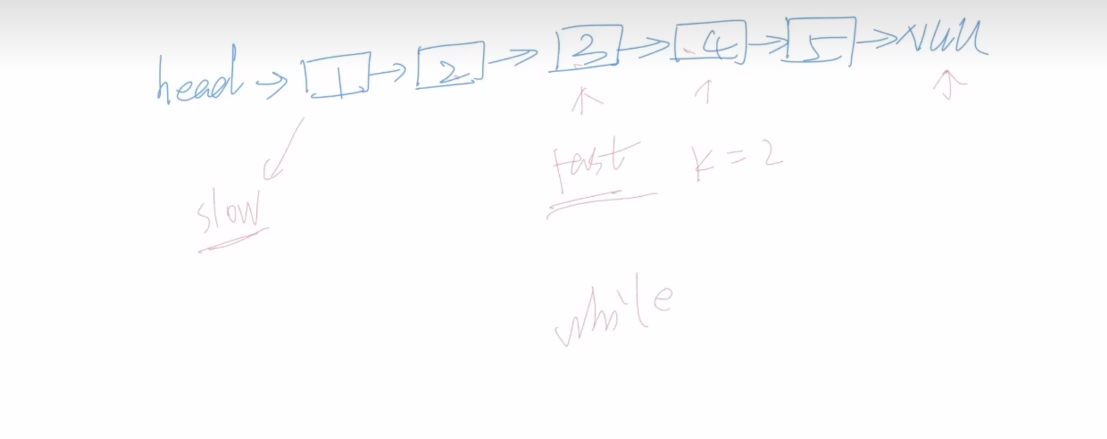 head → 1 → 2 → 3 → 4 → 5 → NULL
slow
fast K = 2
while